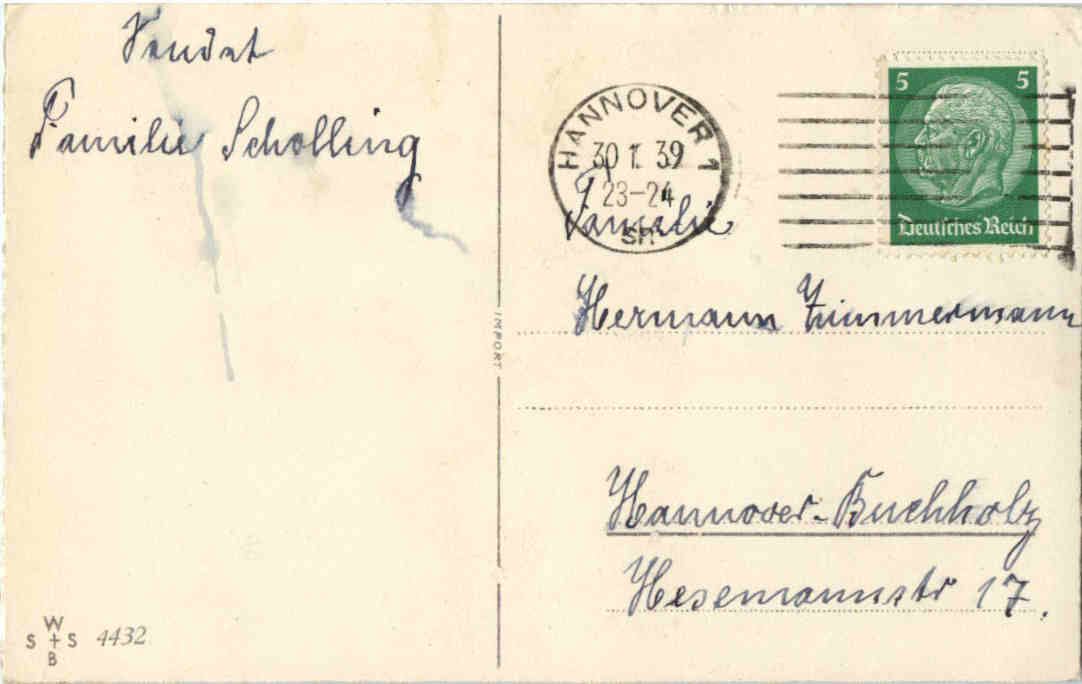 Sendet
Familie Scholling
HANNOVER 1
30 1. 39
23-24
SR
5 5
Deutsches Reich
Familie
Hermann Zimmermann
IMPORT
Hannover-Buchholz
Hesemannstr 17.
W
S + S 4432
B